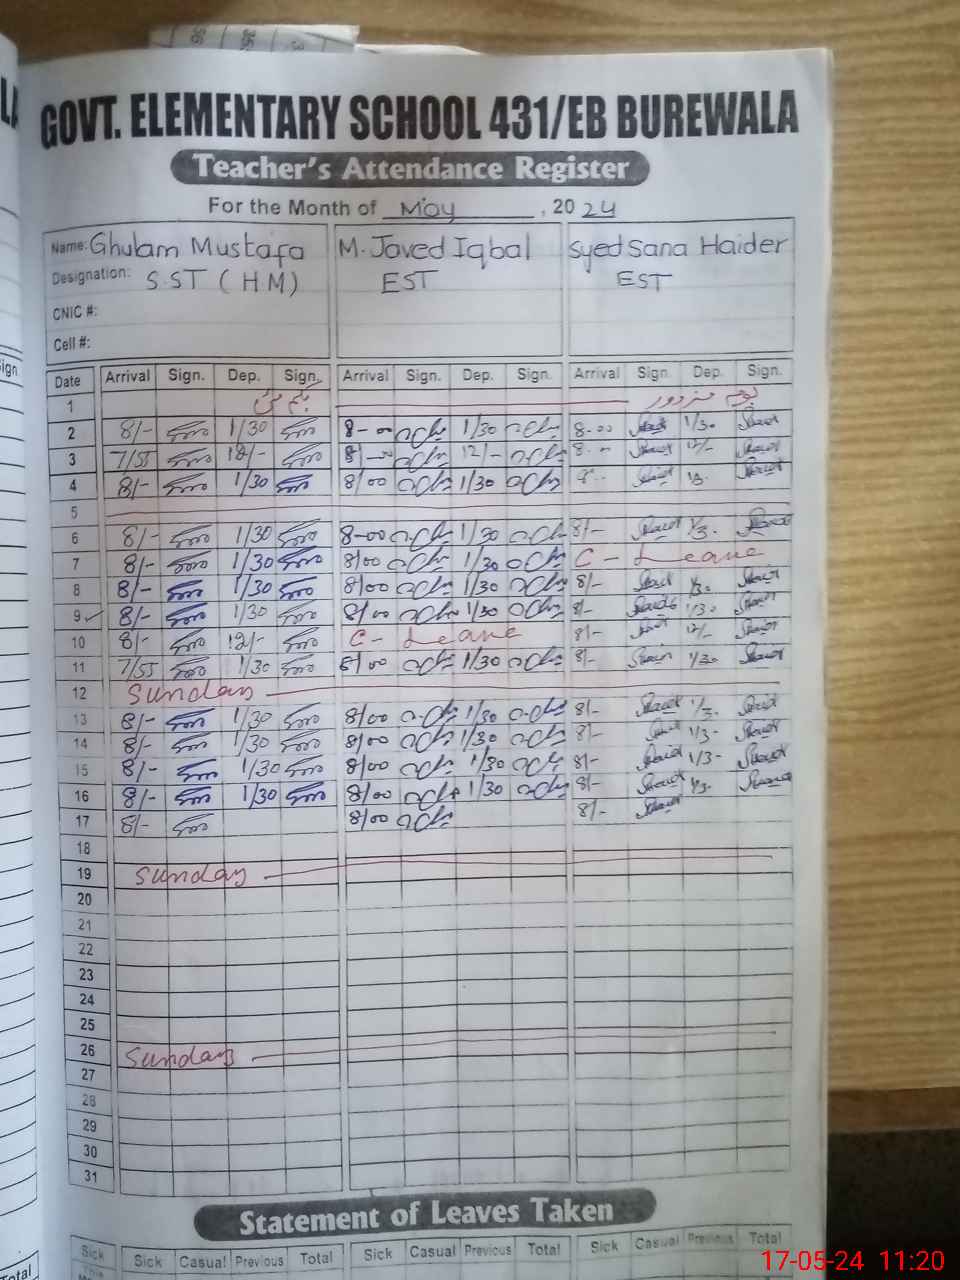 GOVT. ELEMENTARY SCHOOL 431/EB BUREWALA
Teacher's Attendance Register
For the Month of May, 2024
Name: Ghulam Mustafa M. Javed Iqbal Syed Sana Haider
Designation: S.ST (HM) EST EST
CNIC #:
Cell #:
Date Arrival Sign. Dep. Sign. Arrival Sign. Dep. Sign. Arrival Sign. Dep. Sign.
1 یکم مئی یوم مزدور
2 8/- 1/30 8-00 1/30 8-00 1/30
3 7/55 12/- 8/-00 12/- 8-00 12/-
4 8/- 1/30 8/00 1/30 8-
5
6 8/- 1/30 8-00 1/30 8/-
7 8/- 1/30 8/00 1/30 C- Leave
8 8/- 1/30 8/00 1/30 8/- 1/30
9 8/- 1/30 8/00 1/30 8/- 1/30
10 8/- 12/- C- Leave 8/- 12/-
11 7/55 1/30 8/00 1/30 8/- 1/30
12 Sunday
13 8/- 1/30 8/00 1/30 8/-
14 8/- 1/30 8/00 1/30 8/- 1/3-
15 8/- 1/30 8/00 1/30 8/- 1/3-
16 8/- 1/30 8/00 1/30 8/- 1/3-
17 8/- 8/00 8/-
18
19 Sunday
20
21
22
23
24
25
26 Sunday
27
28
29
30
31
Statement of Leaves Taken
Sick Sick Casual Previous Total Sick Casual Previous Total Sick Casual Previous Total
17-05-24 11:20